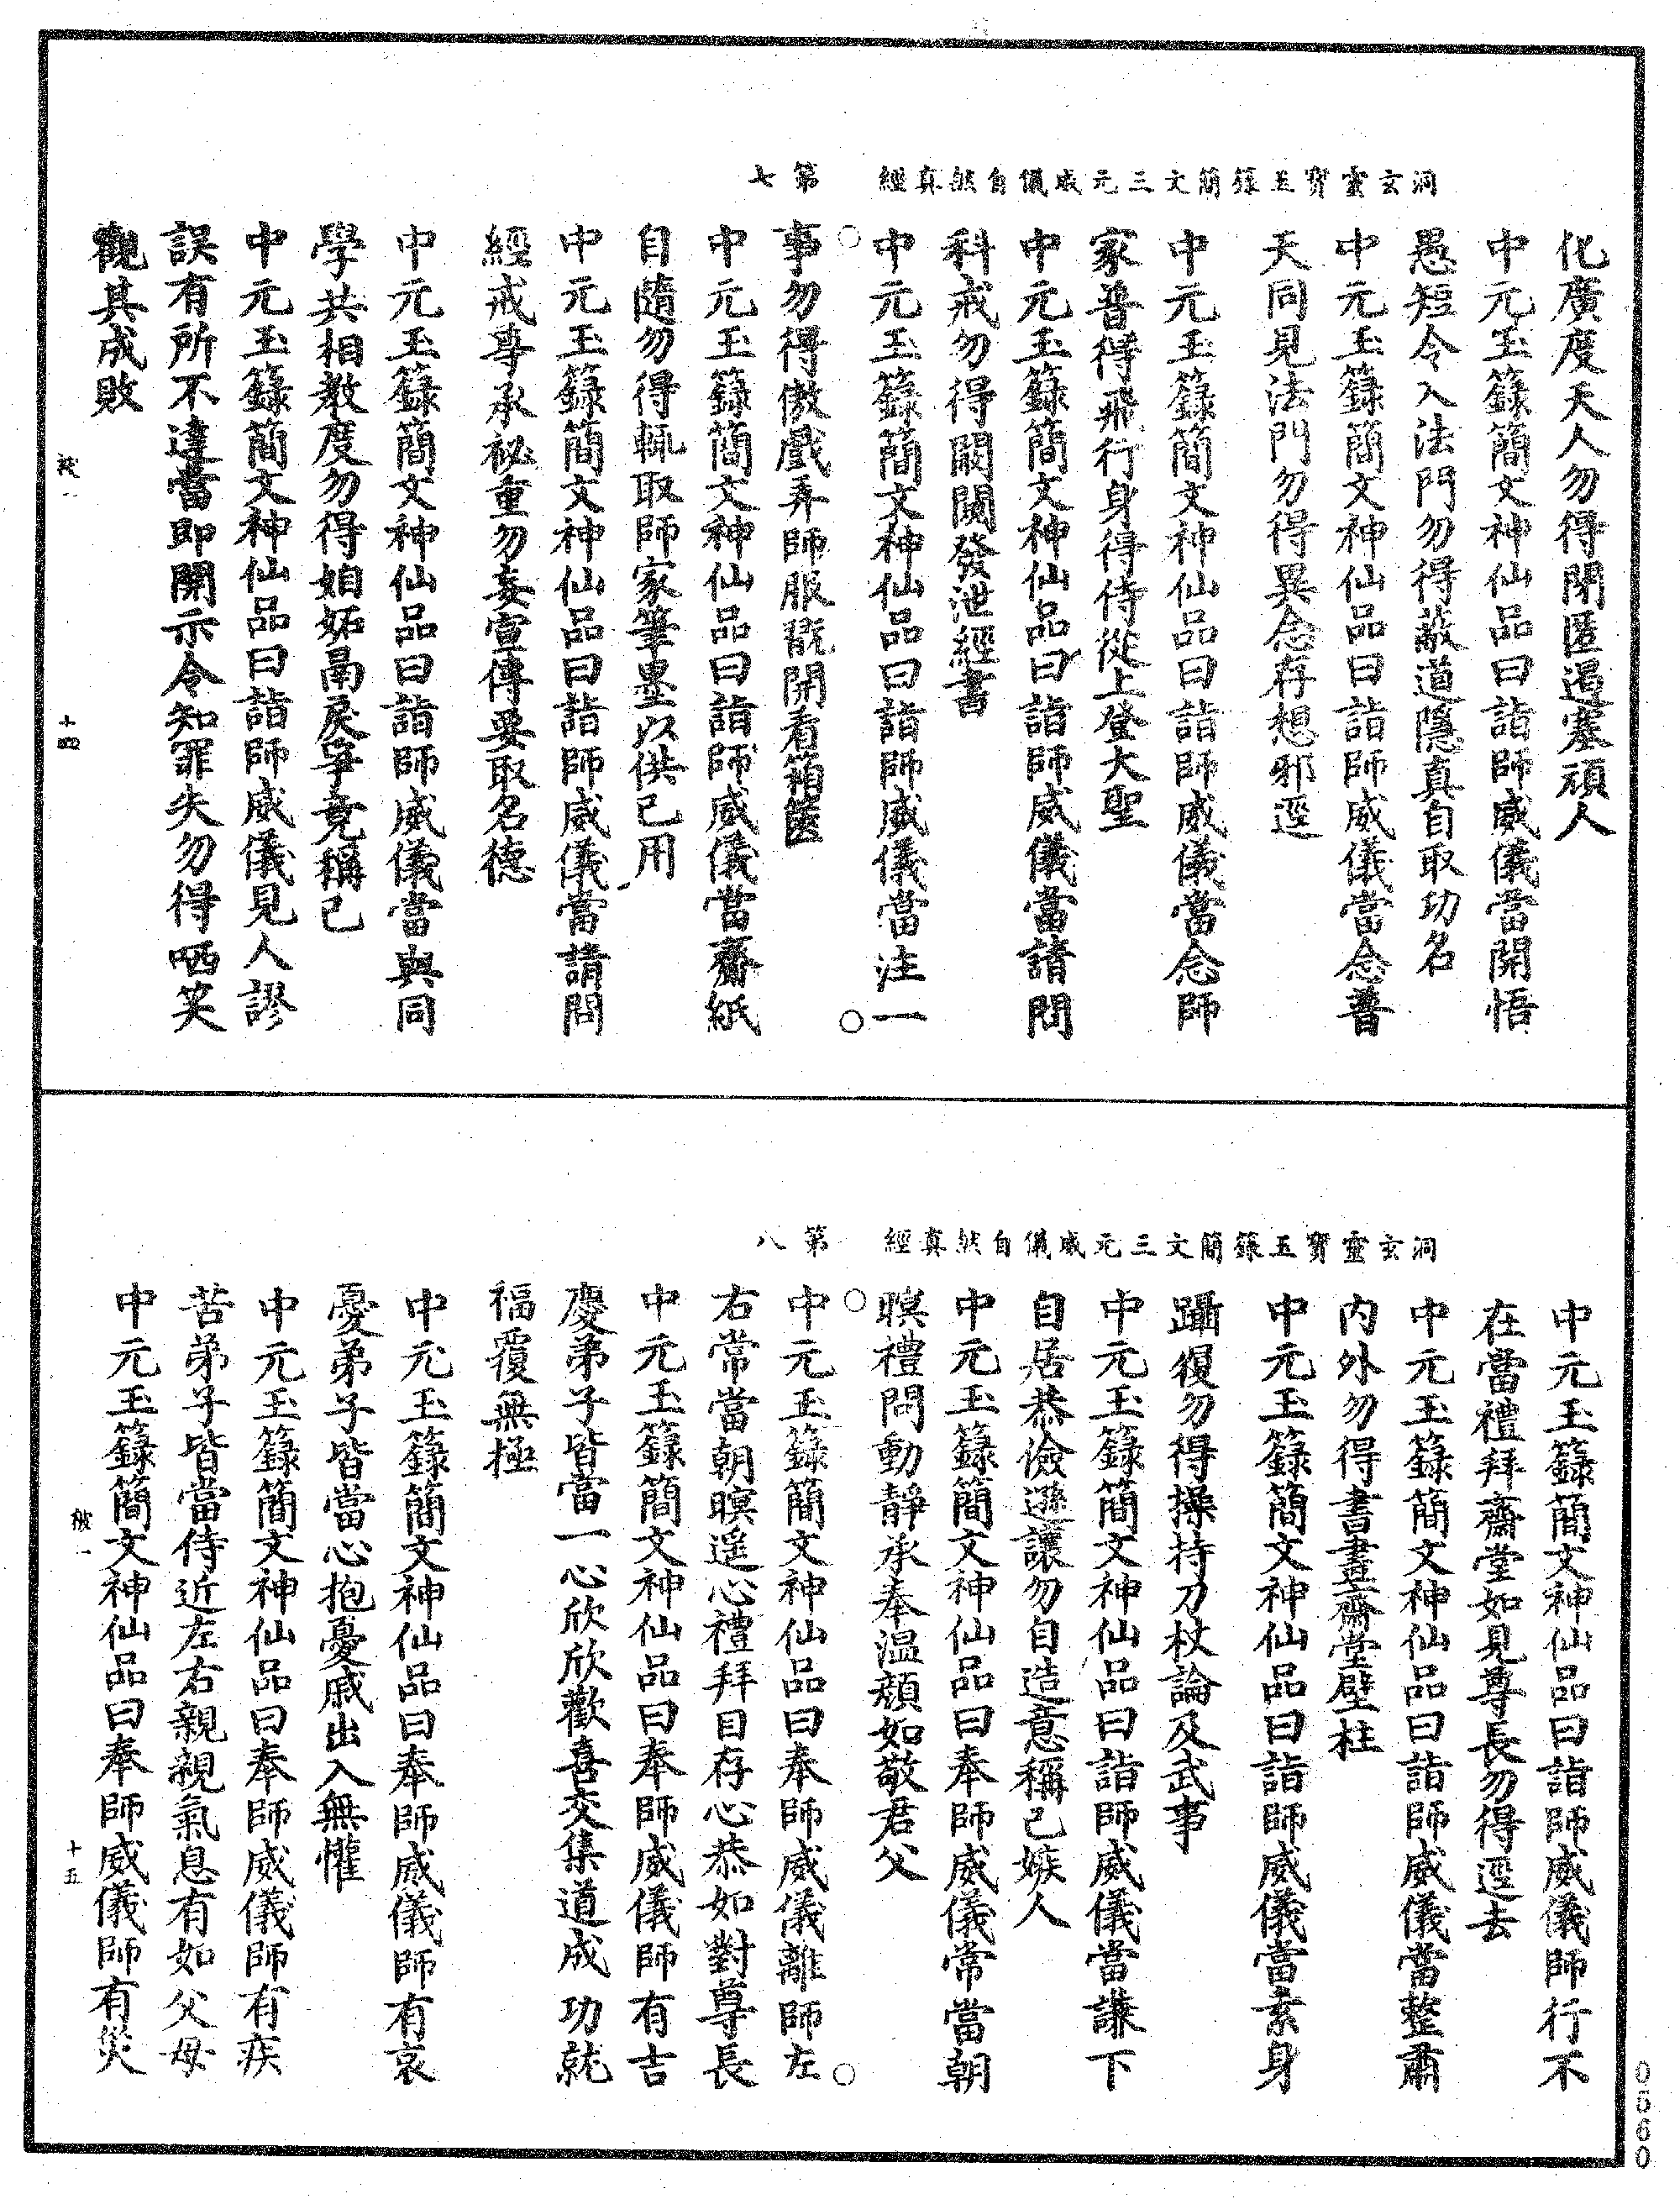 洞玄靈寶玉籙簡文三元威儀自然真經　第七
化廣度天人勿得閉匿遏塞頑人
中元玉籙簡文神仙品曰詣師威儀當開悟
愚短令入法門勿得蔽道隱真自取功名
中元玉籙簡文神仙品曰詣師威儀當念普
天同見法門勿得異念存想邪逕
中元玉籙簡文神仙品曰詣師威儀當念師
家普得飛行身得侍從上登大聖
中元玉籙簡文神仙品曰詣師威儀當請問
科戒勿得闕閱發泄經書
中元玉籙簡文神仙品曰詣師威儀當注一
事勿得傲戲弄師服翫開看箱篋
中元玉籙簡文神仙品曰詣師威儀當齎紙
自隨勿得輒取師家筆墨以供己用
中元玉籙簡文神仙品曰詣師威儀當請問
經戒尋承祕重勿妄宣傳要取名德
中元玉籙簡文神仙品曰詣師威儀當與同
學共相教度勿得妲妬鬲戾爭竟稱己
中元玉籙簡文神仙品曰詣師威儀見人謬
誤有所不達當即開示令知罪失勿得哂笑
觀其成敗
被一
十四
洞玄靈寶玉籙簡文三元威儀自然真經　第八
中元玉籙簡文神仙品曰詣師威儀師行不
在當禮拜齋堂如見尊長勿得逕去
中元玉籙簡文神仙品曰詣師威儀當整肅
内外勿得書畫齋堂壁柱
中元玉籙簡文神仙品曰詣師威儀當素身
躡復勿得操持刀杖論及武事
中元玉籙簡文神仙品曰詣師威儀當謙下
自居恭儉遜讓勿自造意稱己嫉人
中元玉籙簡文神仙品曰奉師威儀常當朝
暝禮問動靜承奉溫顏如敬君父
中元玉籙簡文神仙品曰奉師威儀離師左
右常當朝暝遥心禮拜目存心恭如對尊長
中元玉籙簡文神仙品曰奉師威儀師有吉
慶弟子皆當一心欣欣歡喜交集道成功就
福覆無極
中元玉籙簡文神仙品曰奉師威儀師有哀
憂弟子皆當心抱憂戚出入無懽
中元玉籙簡文神仙品曰奉師威儀師有疾
苦弟子皆當侍近左右親親氣息有如父母
中元玉籙簡文神仙品曰奉師威儀師有災
被一
十五
0560